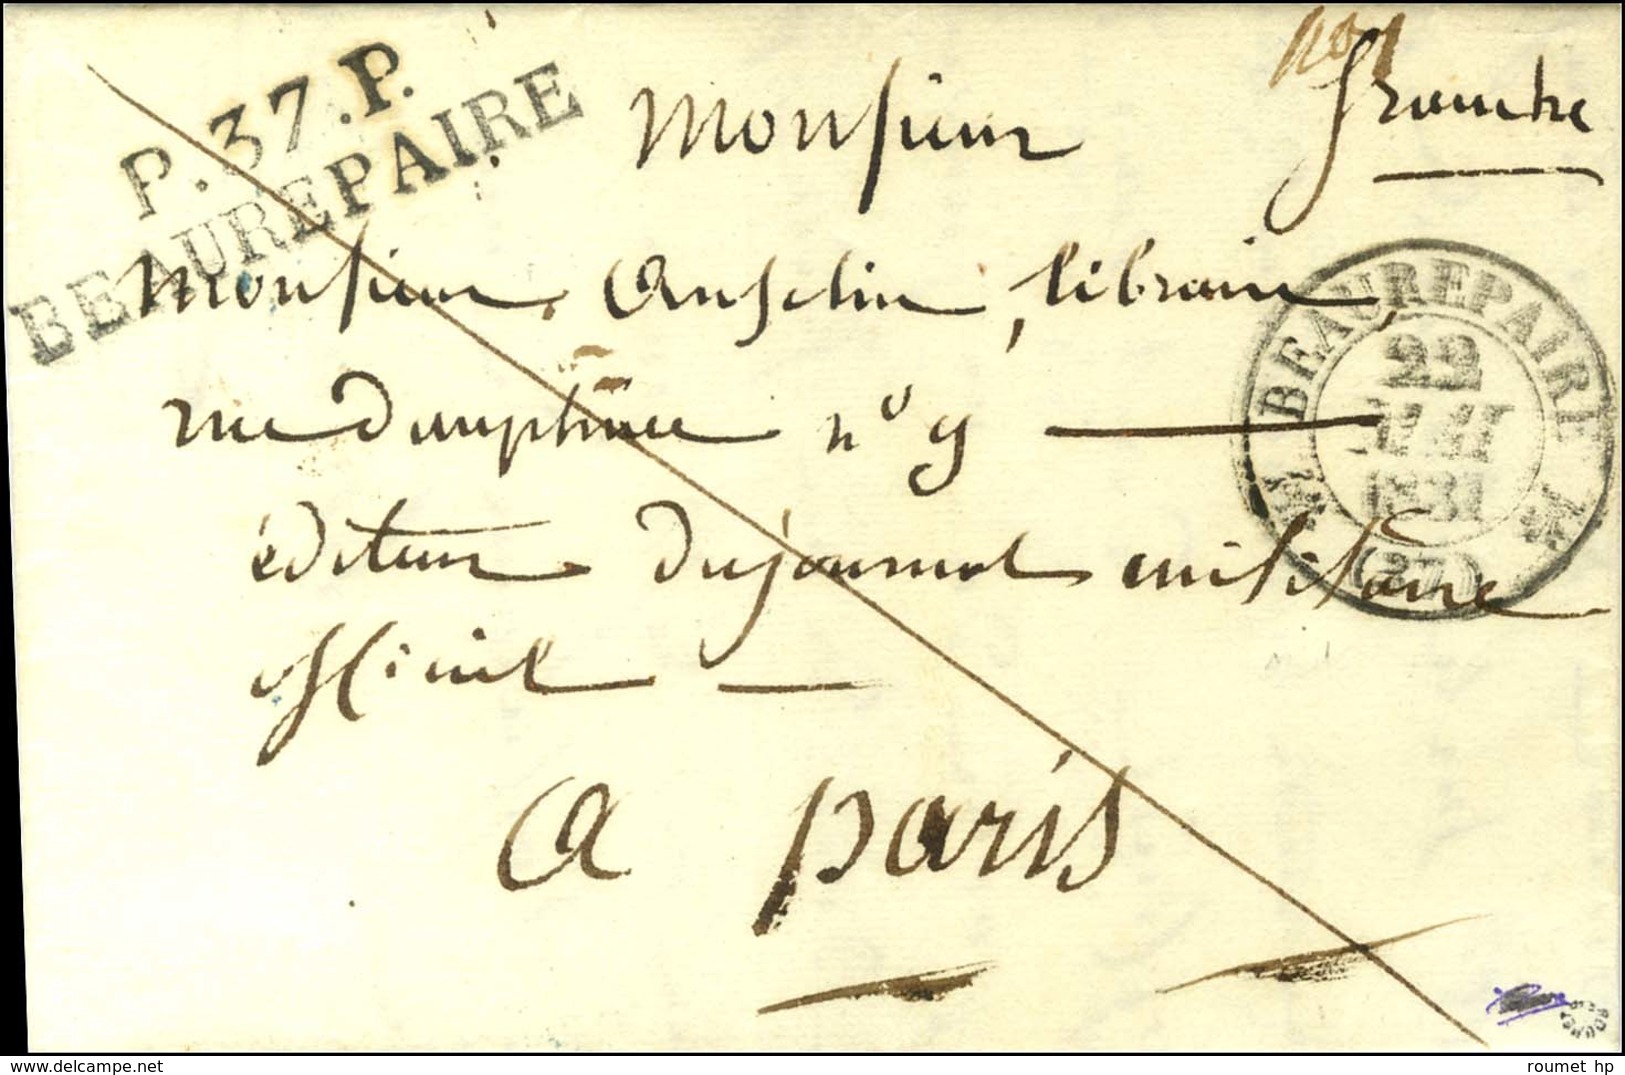 P.37.P.
BEAUREPAIRE
franche
Monsieur
Monsieur Anselin, libraire,
rue dauphine n° 9
éditeur du journal militaire
officiel
a paris
BEAUREPAIRE
22
MAI
1831
(37)
ROUMET
roumet hp